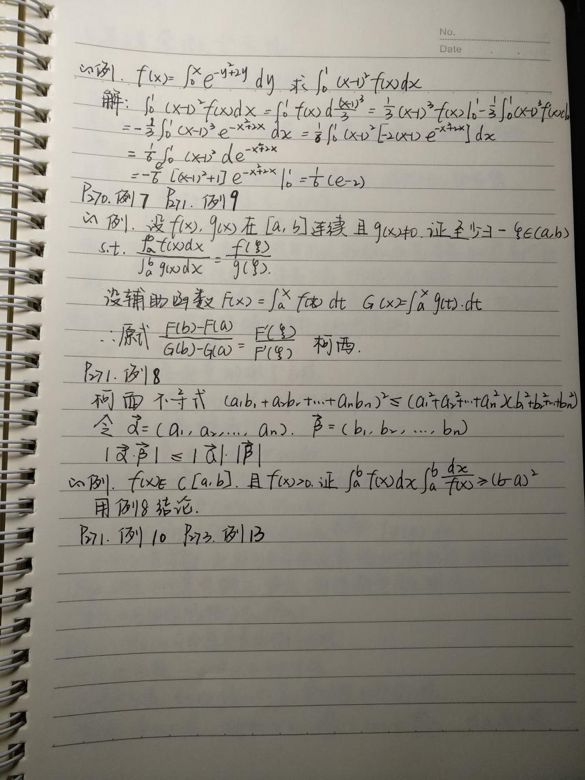 No.
Date
例. f(x)=∫₀ˣ e^{-y²+2y} dy 求∫₀¹ (x-1)² f(x)dx
解: ∫₀¹ (x-1)² f(x)dx = ∫₀¹ f(x) d (x-1)³/3 = 1/3 (x-1)³ f(x)|₀¹ - 1/3 ∫₀¹ (x-1)³ f'(x)
= -1/3 ∫₀¹ (x-1)³ e^{-x²+2x} dx = 1/6 ∫₀¹ (x-1)² [-2(x-1) e^{-x²+2x}] dx
= 1/6 ∫₀¹ (x-1)² d e^{-x²+2x}
= -1/6 [(x-1)²+1] e^{-x²+2x} |₀¹ = 1/6 (e-2)
P270. 例7 P271. 例9
例. 设f(x), g(x)在[a, b]连续且g(x)≠0. 证至少∃一ξ∈(a,b)
s.t. ∫ₐᵇ f(x)dx / ∫ₐᵇ g(x)dx = f(ξ)/g(ξ).
设辅助函数 F(x)=∫ₐˣ f(t) dt G(x)=∫ₐˣ g(t).dt
∴原式 F(b)-F(a) / G(b)-G(a) = F'(ξ)/F'(ξ) 柯西.
P271. 例8
柯西不等式 (a₁b₁+a₂b₂+…+aₙbₙ)² ≤ (a₁²+a₂²+…+aₙ²)(b₁²+b₂²+…+bₙ²)
令 α⃗=(a₁, a₂, …, aₙ). β⃗=(b₁, b₂, …, bₙ)
|α⃗·β⃗| ≤ |α⃗|·|β⃗|
例. f(x)∈C[a,b]. 且f(x)>0. 证 ∫ₐᵇ f(x)dx ∫ₐᵇ dx/f(x) ≥ (b-a)²
用例8结论.
P271. 例10 P273. 例13